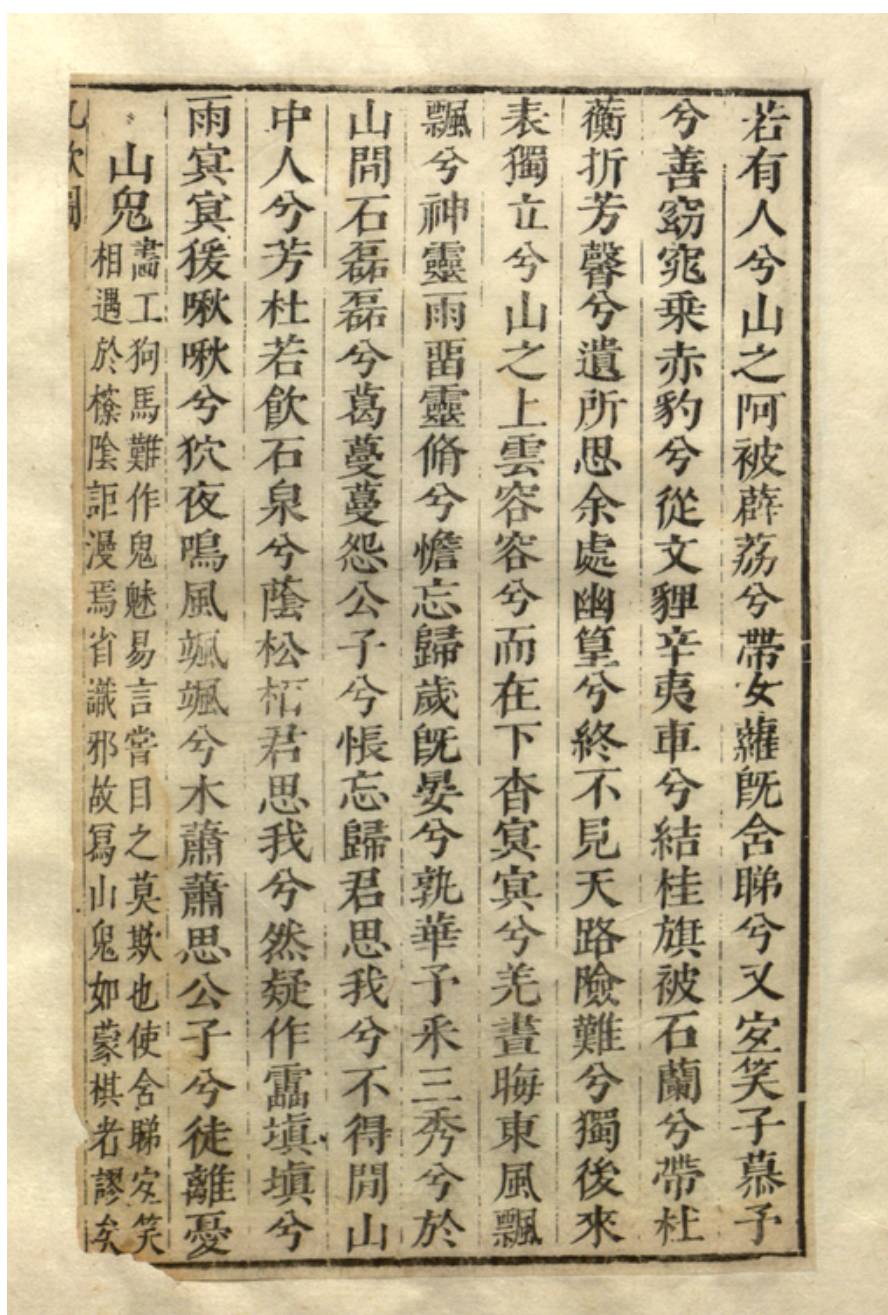 若有人兮山之阿被薜荔兮帶女蘿既含睇兮又宜笑子慕予
兮善窈窕乘赤豹兮從文貍辛夷車兮結桂旗被石蘭兮帶杜
蘅折芳馨兮遺所思余處幽篁兮終不見天路險難兮獨後來
表獨立兮山之上雲容容兮而在下杳冥冥兮羌晝晦東風飄
飄兮神靈雨畱靈脩兮憺忘歸歲既晏兮孰華予采三秀兮於
山間石磊磊兮葛蔓蔓怨公子兮悵忘歸君思我兮不得閒山
中人兮芳杜若飲石泉兮蔭松栢君思我兮然疑作靁填填兮
雨冥冥猨啾啾兮狖夜鳴風颯颯兮木蕭蕭思公子兮徒離憂
山鬼
畵工狗馬難作鬼魅易言嘗目之莫欺也使含睇宜笑
相遇於榛陰詎漫焉省識邪故爲山鬼如蒙棋者謬矣
九歌圖